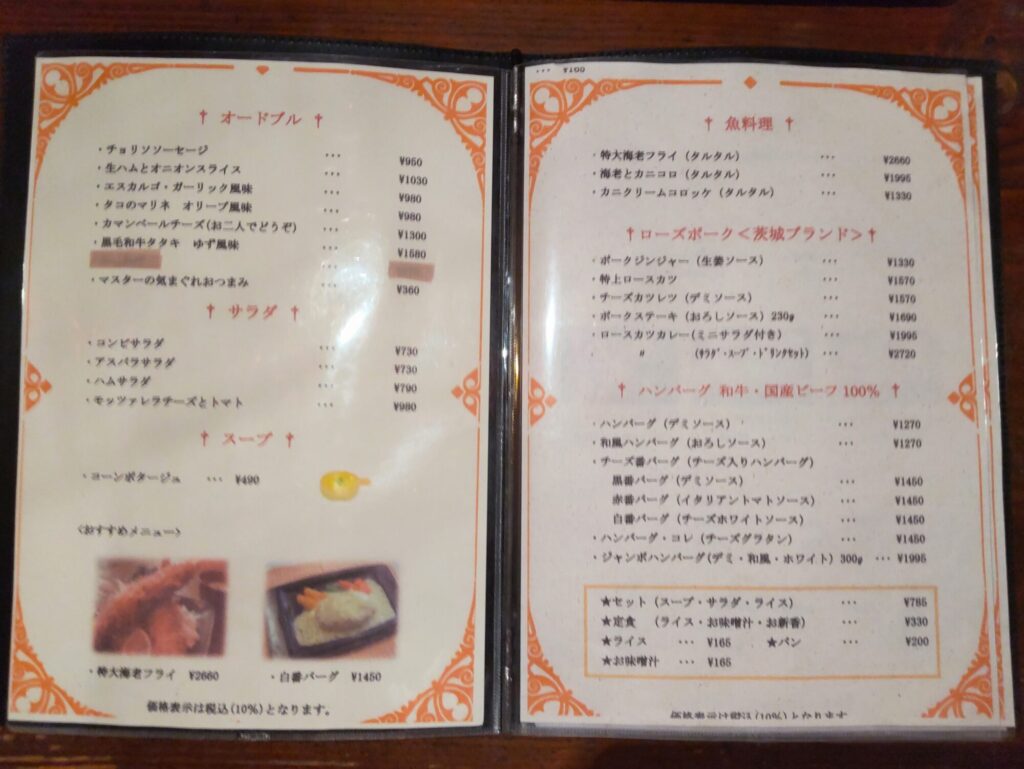 † オードブル †
・チョリソーセージ ・・・ ¥950
・生ハムとオニオンスライス ・・・ ¥1030
・エスカルゴ・ガーリック風味 ・・・ ¥980
・タコのマリネ オリーブ風味 ・・・ ¥980
・カマンベールチーズ(お二人でどうぞ) ・・・ ¥1300
・黒毛和牛タタキ ゆず風味 ・・・ ¥1580
・マスターの気まぐれおつまみ ・・・ ¥360
† サラダ †
・コンビサラダ ・・・ ¥730
・アスパラサラダ ・・・ ¥730
・ハムサラダ ・・・ ¥790
・モッツァレラチーズとトマト ・・・ ¥980
† スープ †
・コーンポタージュ ・・・ ¥490
〈おすすめメニュー〉
・特大海老フライ ¥2660
・白番バーグ ¥1450
価格表示は税込(10%)となります。
† 魚料理 †
・特大海老フライ(タルタル) ・・・ ¥2660
・海老とカニコロ(タルタル) ・・・ ¥1995
・カニクリームコロッケ(タルタル) ・・・ ¥1330
† ローズポーク<茨城ブランド> †
・ポークジンジャー(生姜ソース) ・・・ ¥1330
・特上ロースカツ ・・・ ¥1570
・チーズカツレツ(デミソース) ・・・ ¥1570
・ポークステーキ(おろしソース)230g ・・・ ¥1690
・ロースカツカレー(ミニサラダ付き) ・・・ ¥1995
〃 (ｻﾗﾀﾞ・ｽｰﾌﾟ・ﾄﾞﾘﾝｸｾｯﾄ) ・・・ ¥2720
† ハンバーグ 和牛・国産ビーフ 100% †
・ハンバーグ(デミソース) ・・・ ¥1270
・和風ハンバーグ(おろしソース) ・・・ ¥1270
・チーズ番バーグ(チーズ入りハンバーグ)
黒番バーグ(デミソース) ・・・ ¥1450
赤番バーグ(イタリアントマトソース) ・・・ ¥1450
白番バーグ(チーズホワイトソース) ・・・ ¥1450
・ハンバーグ・コレ(チーズグラタン) ・・・ ¥1450
・ジャンボハンバーグ(デミ・和風・ホワイト)300g ・・・ ¥1995
★セット(スープ・サラダ・ライス) ・・・ ¥785
★定食 (ライス・お味噌汁・お新香) ・・・ ¥330
★ライス ・・・ ¥165 ★パン ・・・ ¥200
★お味噌汁 ・・・ ¥165
価格表示は税込(10%)となります